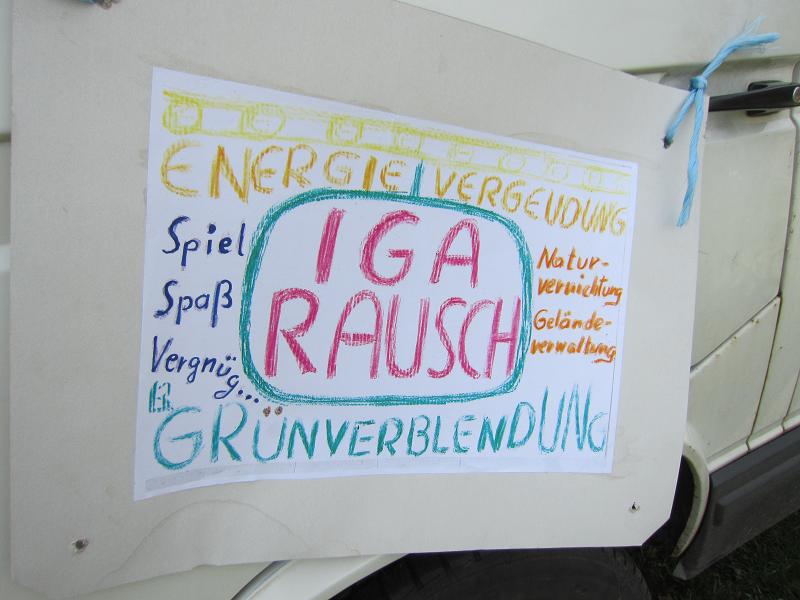 ENERGIE VERGEUDUNG
Spiel
Spaß
Vergnüg...
IGA
RAUSCH
Natur-
vernichtung
Gelände-
verwaltung
GRÜNVERBLENDUNG